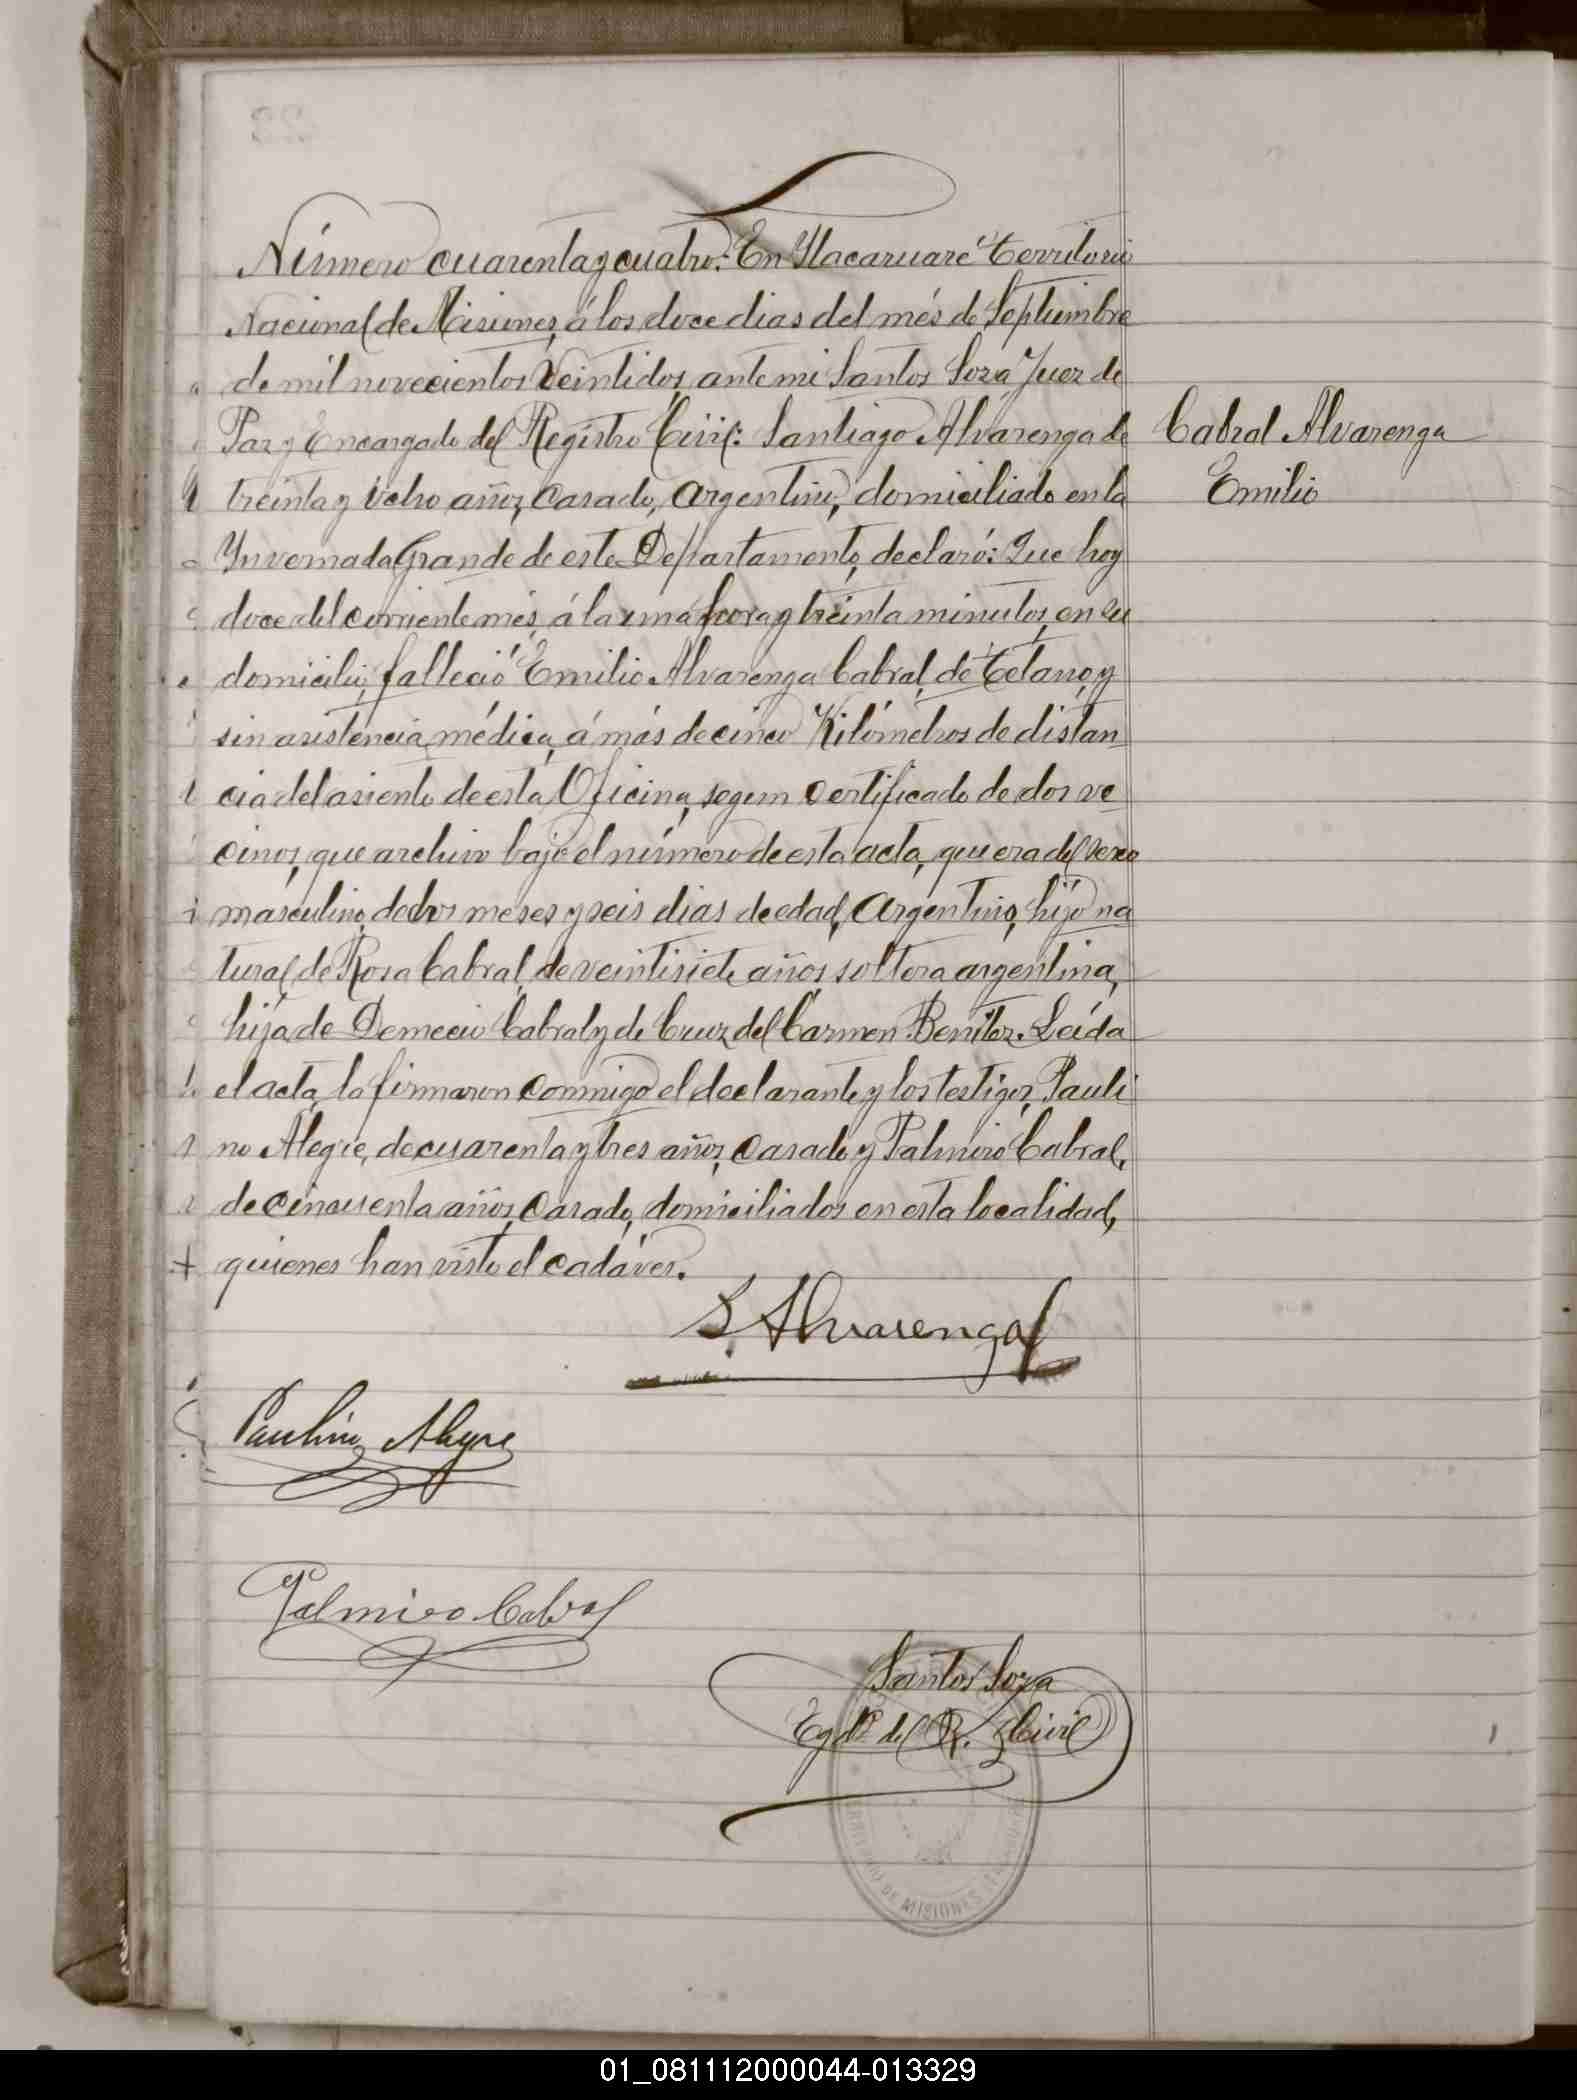 Número cuarenta y cuatro: En Ytacaruaré Territorio
Nacional de Misiones, á los doce dias del més de Septiembre
de mil novecientos veintidos, ante mi Santos Soza Juez de
Paz y Encargado del Registro Civil: Santiago Alvarenga de
treinta y ocho años, casado, argentino, domiciliado en la
Ynvernada Grande de este Departamento, declaró: Que hoy
doce del corriente més, á la una hora y treinta minutos, en su
domicilio, falleció Emilio Alvarenga Cabral, de tétano, y
sin asistencia médica, á más de cinco Kilómetros de distan=
cia del asiento de esta Oficina, segun certificado de dos ve=
cinos, que archivo bajo el número de esta acta, que era del sexo
masculino, de dos meses y seis dias de edad, Argentino, hijo na
tural de Rosa Cabral, de veintisiete años soltera argentina,
hija de Demecio Cabral y de Cruz del Carmen Benítez. Leída
el acta, la firmaron conmigo el declarante y los testigos, Pauli
no Alegre, de cuarenta y tres años, casado y Palmiro Cabral,
de cincuenta años, casado, domiciliados en esta localidad,
quienes han visto el cadáver.
Cabral Alvarenga
Emilio
S. Alvarenga
Paulino Alegre
Palmiro Cabral
Santos Soza
Egdo. del R. Civil
TERRITORIO DE MISIONES
01_081112000044-013329